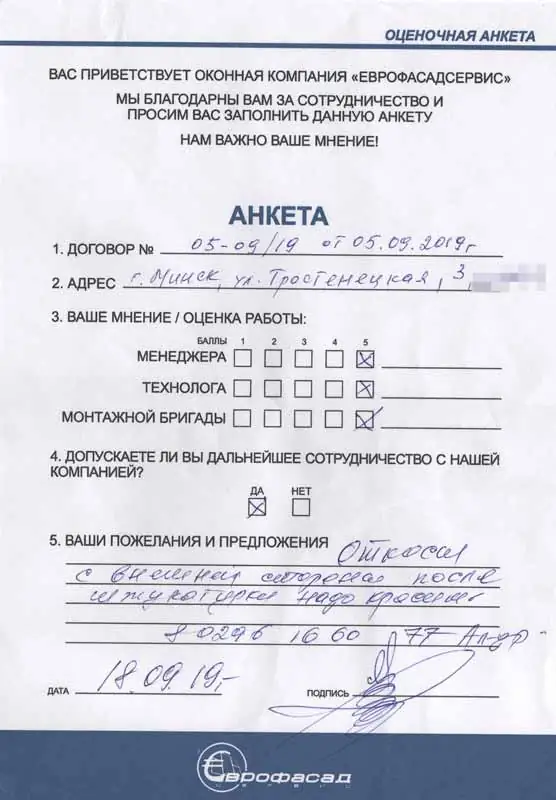 ОЦЕНОЧНАЯ АНКЕТА
ВАС ПРИВЕТСТВУЕТ ОКОННАЯ КОМПАНИЯ «ЕВРОФАСАДСЕРВИС»
МЫ БЛАГОДАРНЫ ВАМ ЗА СОТРУДНИЧЕСТВО И
ПРОСИМ ВАС ЗАПОЛНИТЬ ДАННУЮ АНКЕТУ
НАМ ВАЖНО ВАШЕ МНЕНИЕ!
АНКЕТА
1. ДОГОВОР № 05-09/19 от 05.09.2019г
2. АДРЕС г. Минск, ул. Тростенецкая, 3,
3. ВАШЕ МНЕНИЕ / ОЦЕНКА РАБОТЫ:
БАЛЛЫ 1 2 3 4 5
МЕНЕДЖЕРА
ТЕХНОЛОГА
МОНТАЖНОЙ БРИГАДЫ
4. ДОПУСКАЕТЕ ЛИ ВЫ ДАЛЬНЕЙШЕЕ СОТРУДНИЧЕСТВО С НАШЕЙ
КОМПАНИЕЙ?
ДА НЕТ
5. ВАШИ ПОЖЕЛАНИЯ И ПРЕДЛОЖЕНИЯ Откосы
с внешней стороны после
штукатурки надо красить
80296 16 60 77 Ал-др
ДАТА 18.09.19,- ПОДПИСЬ
Еврофасад